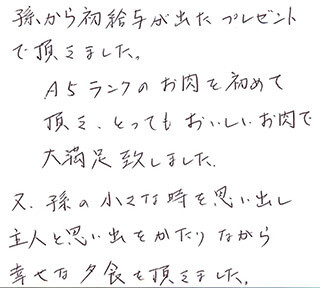 孫から初給与が出たプレゼント
で頂きました。
A5ランクのお肉を初めて
頂き、とってもおいしいお肉で
大満足致しました。
又、孫の小さな時を思い出し
主人と思い出をかたりながら
幸せな夕食を頂きました。